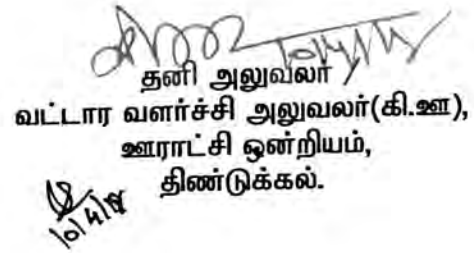 தனி அலுவலர் /
வட்டார வளர்ச்சி அலுவலர்(கி.ஊ),
ஊராட்சி ஒன்றியம்,
திண்டுக்கல்.